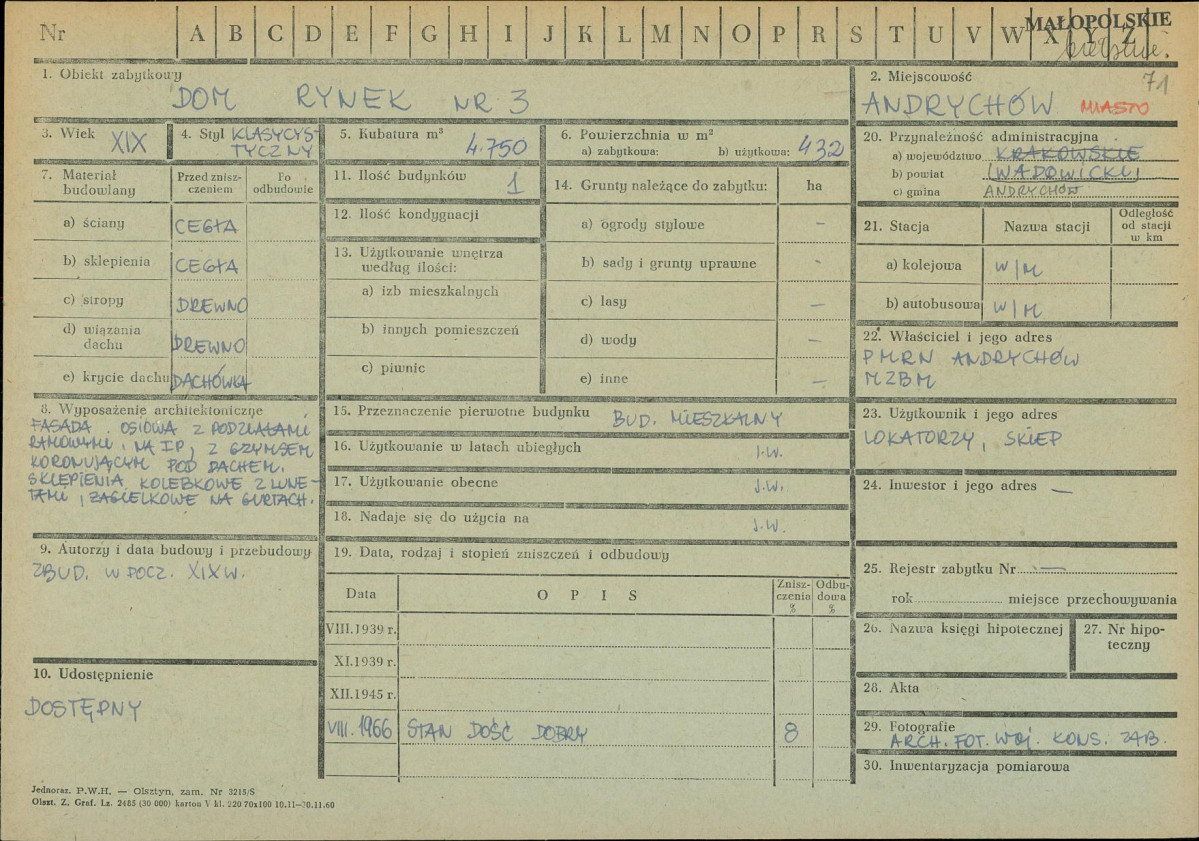 Nr A B C D E F G H I J K L M N O P R S T U V W X Y Z
MAŁOPOLSKIE
1. Obiekt zabytkowy
DOM RYNEK NR 3
2. Miejscowość 71
ANDRYCHÓW MIASTO
3. Wiek XIX
4. Styl KLASYCYS-
TYCZNY
5. Kubatura m³
4.750
6. Powierzchnia w m²
a) zabytkowa: b) użytkowa: 432
20. Przynależność administracyjna
a) województwo KRAKOWSKIE
b) powiat (WADOWICKI)
c) gmina ANDRYCHÓW
7. Materiał
budowlany
Przed znisz-
czeniem
Po
odbudowie
a) ściany CEGŁA
b) sklepienia CEGŁA
c) stropy DREWNO
d) wiązania
dachu DREWNO
e) krycie dachu DACHÓWKA
11. Ilość budynków 1
12. Ilość kondygnacji
13. Użytkowanie wnętrza
według ilości:
a) izb mieszkalnych
b) innych pomieszczeń
c) piwnic
14. Grunty należące do zabytku: ha
a) ogrody stylowe –
b) sady i grunty uprawne -
c) lasy –
d) wody –
e) inne –
21. Stacja Nazwa stacji
Odległość
od stacji
w km
a) kolejowa W/M
b) autobusowa W/M
22. Właściciel i jego adres
PMRN ANDRYCHÓW
MZBM
8. Wyposażenie architektoniczne
FASADA OSIOWA Z PODZIAŁAMI
RAMOWYMI, NA IP, Z GZYMSEM
KORONUJĄCYM POD DACHEM.
SKLEPIENIA KOLEBKOWE Z LUNE-
TAMI, ŻAGIELKOWE NA GURTACH.
15. Przeznaczenie pierwotne budynku BUD. MIESZKALNY
16. Użytkowanie w latach ubiegłych J.W.
17. Użytkowanie obecne J.W.
18. Nadaje się do użycia na J.W.
23. Użytkownik i jego adres
LOKATORZY, SKLEP
24. Inwestor i jego adres —
9. Autorzy i data budowy i przebudowy
ZBUD. W POCZ. XIX W.
10. Udostępnienie
DOSTĘPNY
19. Data, rodzaj i stopień zniszczeń i odbudowy
Data OPIS
Znisz-
czenia
%
Odbu-
dowa
%
VIII.1939 r.
XI.1939 r.
XII.1945 r.
VIII.1966 STAN DOŚĆ DOBRY 8
25. Rejestr zabytku Nr —
rok miejsce przechowywania
26. Nazwa księgi hipotecznej
27. Nr hipo-
teczny
28. Akta
29. Fotografie
ARCH. FOT. WOJ. KONS. ZAB.
30. Inwentaryzacja pomiarowa
Jednoraz. P.W.H. — Olsztyn, zam. Nr 3215/S
Olszt. Z. Graf. Lz. 2485 (30 000) karton V kl. 220 70x100 10.11—30.11.60